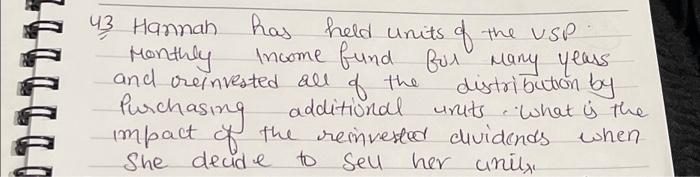 43 Hannah has held units of the VSP.
Monthly Income fund for Many years
and reinvested all of the distribution by
Purchasing additional units. What is the
impact of the reinvested dividends when
She decide to sell her units.